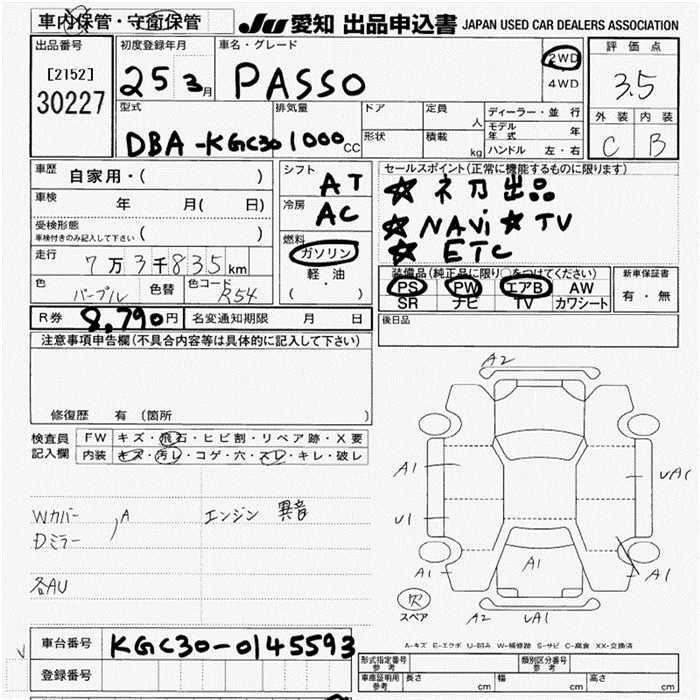 車内保管・守衛保管
JU 愛知 出品申込書 JAPAN USED CAR DEALERS ASSOCIATION
出品番号
[2152]
30227
初度登録年月
25 3月
車名・グレード
PASSO
2WD
4WD
評価点
3.5
外装 内装
C B
型式
DBA-KGC30
排気量
1000 CC
ドア
形状
定員 人
積載 kg
ディーラー・並行
モデル年式 年
ハンドル 左・右
車歴 自家用・( )
車検 年 月( 日)
受検形態
車検付きのみ記入して下さい ( )
走行 7万3千835km
色 パープル 色替 色コード R54
シフト AT
冷房 AC
燃料
ガソリン
軽・油
( ・ )
セールスポイント(正常に機能するものに限ります)
☆ ネ刀出品
☆ NAVi ☆ TV
☆ ETC
装備品(純正品に限り○をつけてください)
PS PW エアB AW
SR ナビ TV カワシート
新車保証書
有・無
R券 8,790円 名変通知期限 月 日
後日品
注意事項申告欄(不具合内容等は具体的に記入して下さい)
修復歴 有 (箇所 )
検査員記入欄
FW キズ・飛石・ヒビ割・リペア跡・X要
内装 キズ・汚レ・コゲ・穴・スレ・キレ・破レ
Wカバー
Dミラー , A
エンジン 異音
各AU
A2
A1
U1
A1
UA1
A1
A1
A2 UA1
欠
スペア
A-キズ E-エクボ U-凹み W-補修跡 S-サビ C-腐食 XX-交換済
車台番号 KGC30-0145593
登録番号
形式指定番号 参考
類別区分番号 参考
車庫証明用 参考 長さ cm 幅 cm 高さ cm